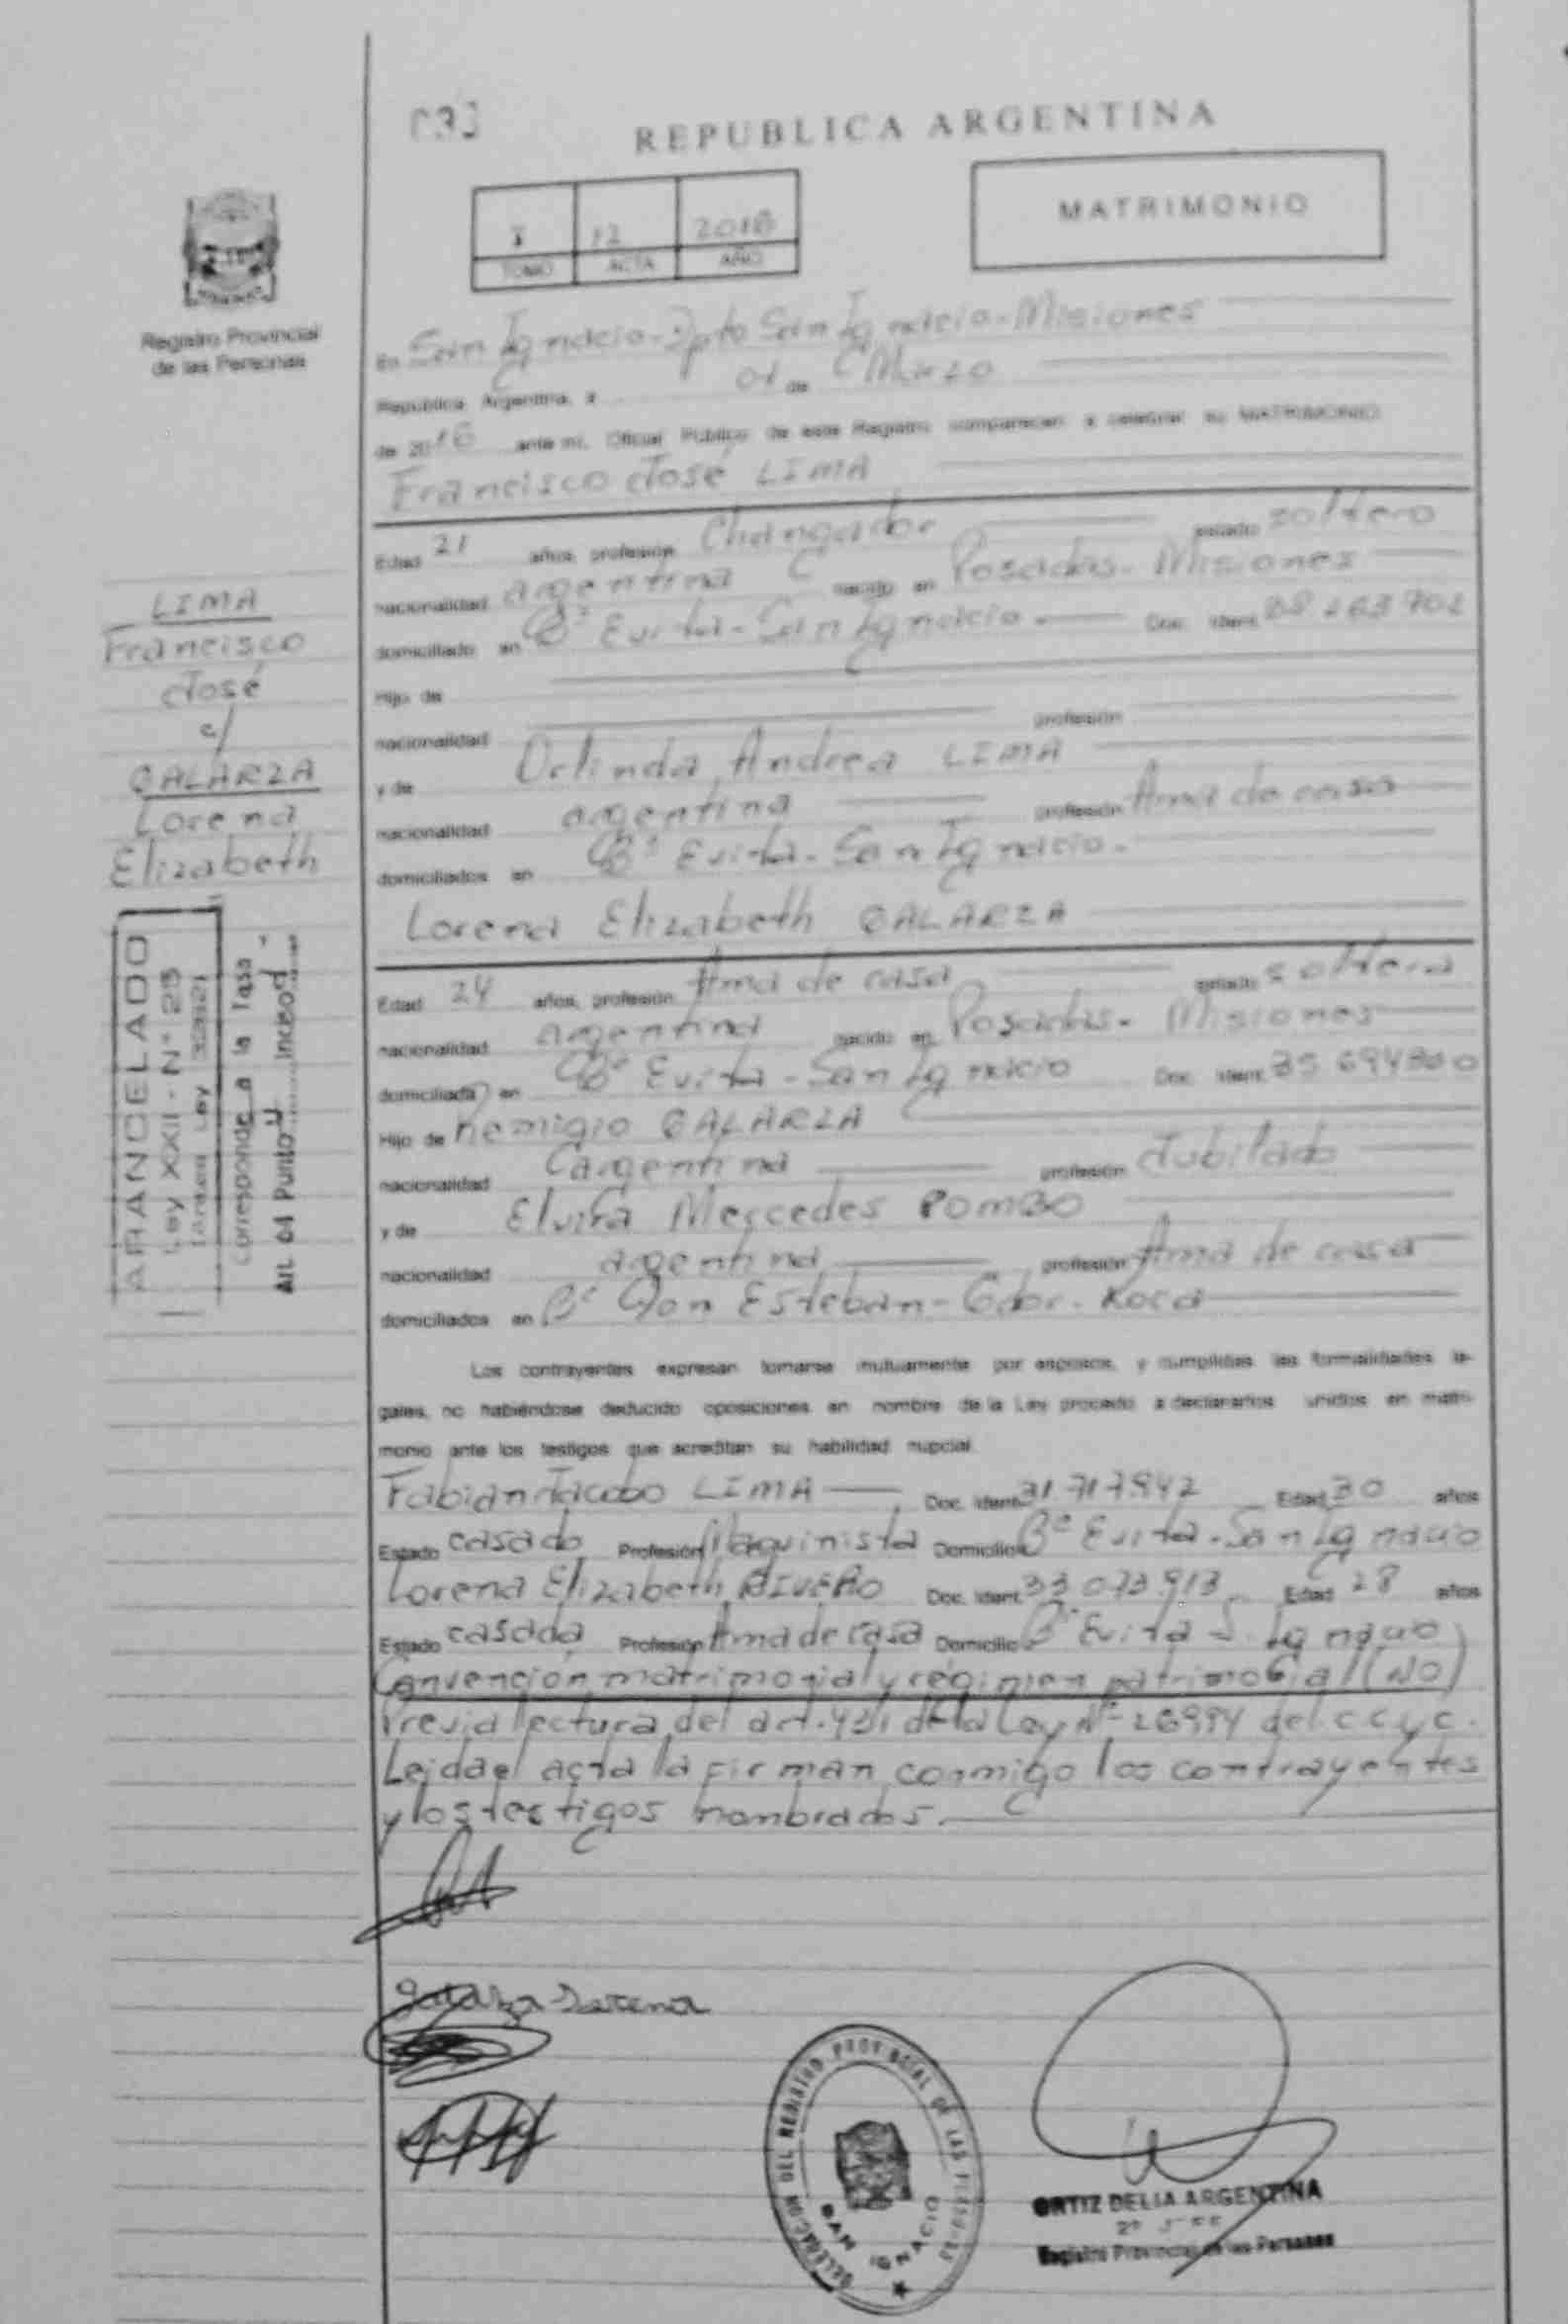 REPUBLICA ARGENTINA
MATRIMONIO
I 12 2016
TOMO ACTA AÑO
Registro Provincial
de las Personas
En San Ignacio-Dpto San Ignacio-Misiones
República Argentina, a 01 de Marzo
de 2016 ante mí, Oficial Público de este Registro comparecen a celebrar su MATRIMONIO
Francisco José LIMA
Edad 21 años, profesión Changador estado soltero
nacionalidad argentina nacido en Posadas- Misiones
domiciliado en B° Evita-San Ignacio.- Doc. Ident.
Hijo de
nacionalidad profesión
y de Orlinda Andrea LIMA
nacionalidad argentina profesión Ama de casa
domiciliados en B° Evita-San Ignacio.
Lorena Elizabeth GALARZA
Edad 24 años, profesión Ama de casa estado soltera
nacionalidad argentina nacido en Posadas- Misiones
domiciliada en B° Evita-San Ignacio Doc. Ident.
Hijo de Remigio GALARZA
nacionalidad argentina profesión Jubilado
y de Elvira Mercedes POMBO
nacionalidad argentina profesión Ama de casa
domiciliados en B° Don Esteban-Gdor. Roca
Los contrayentes expresan tomarse mutuamente por esposos, y cumplidas las formalidades le-
gales, no habiéndose deducido oposiciones en nombre de la Ley procedo a declararlos unidos en matri-
monio ante los testigos que acreditan su habilidad nupcial.
Fabian Jacobo LIMA Doc. Ident. 31.717.942 Edad 30 años
Estado casado Profesión Maquinista Domicilio B° Evita-San Ignacio
Lorena Elizabeth RIVERO Doc. Ident. 33.073.913 Edad 28 años
Estado casada Profesión Ama de casa Domicilio B° Evita S. Ignacio
Convención matrimonial y régimen patrimonial (NO)
Previa lectura del art. 431 de la Ley N° 26994 del C C y C.
Leida el acta la firman conmigo los contrayentes
y los testigos nombrados.
LIMA
Francisco
José
c/
GALARZA
Lorena
Elizabeth
ARANCELADO
Ley XXII - N° 25
Ley
Corresponde a la tasa
Art. 04 Punto Inciso d
Galarza Lorena
DELEGACION DEL REGISTRO PROVINCIAL DE LAS PERSONAS
SAN IGNACIO
ORTIZ DELIA ARGENTINA
Registro Provincial de las Personas